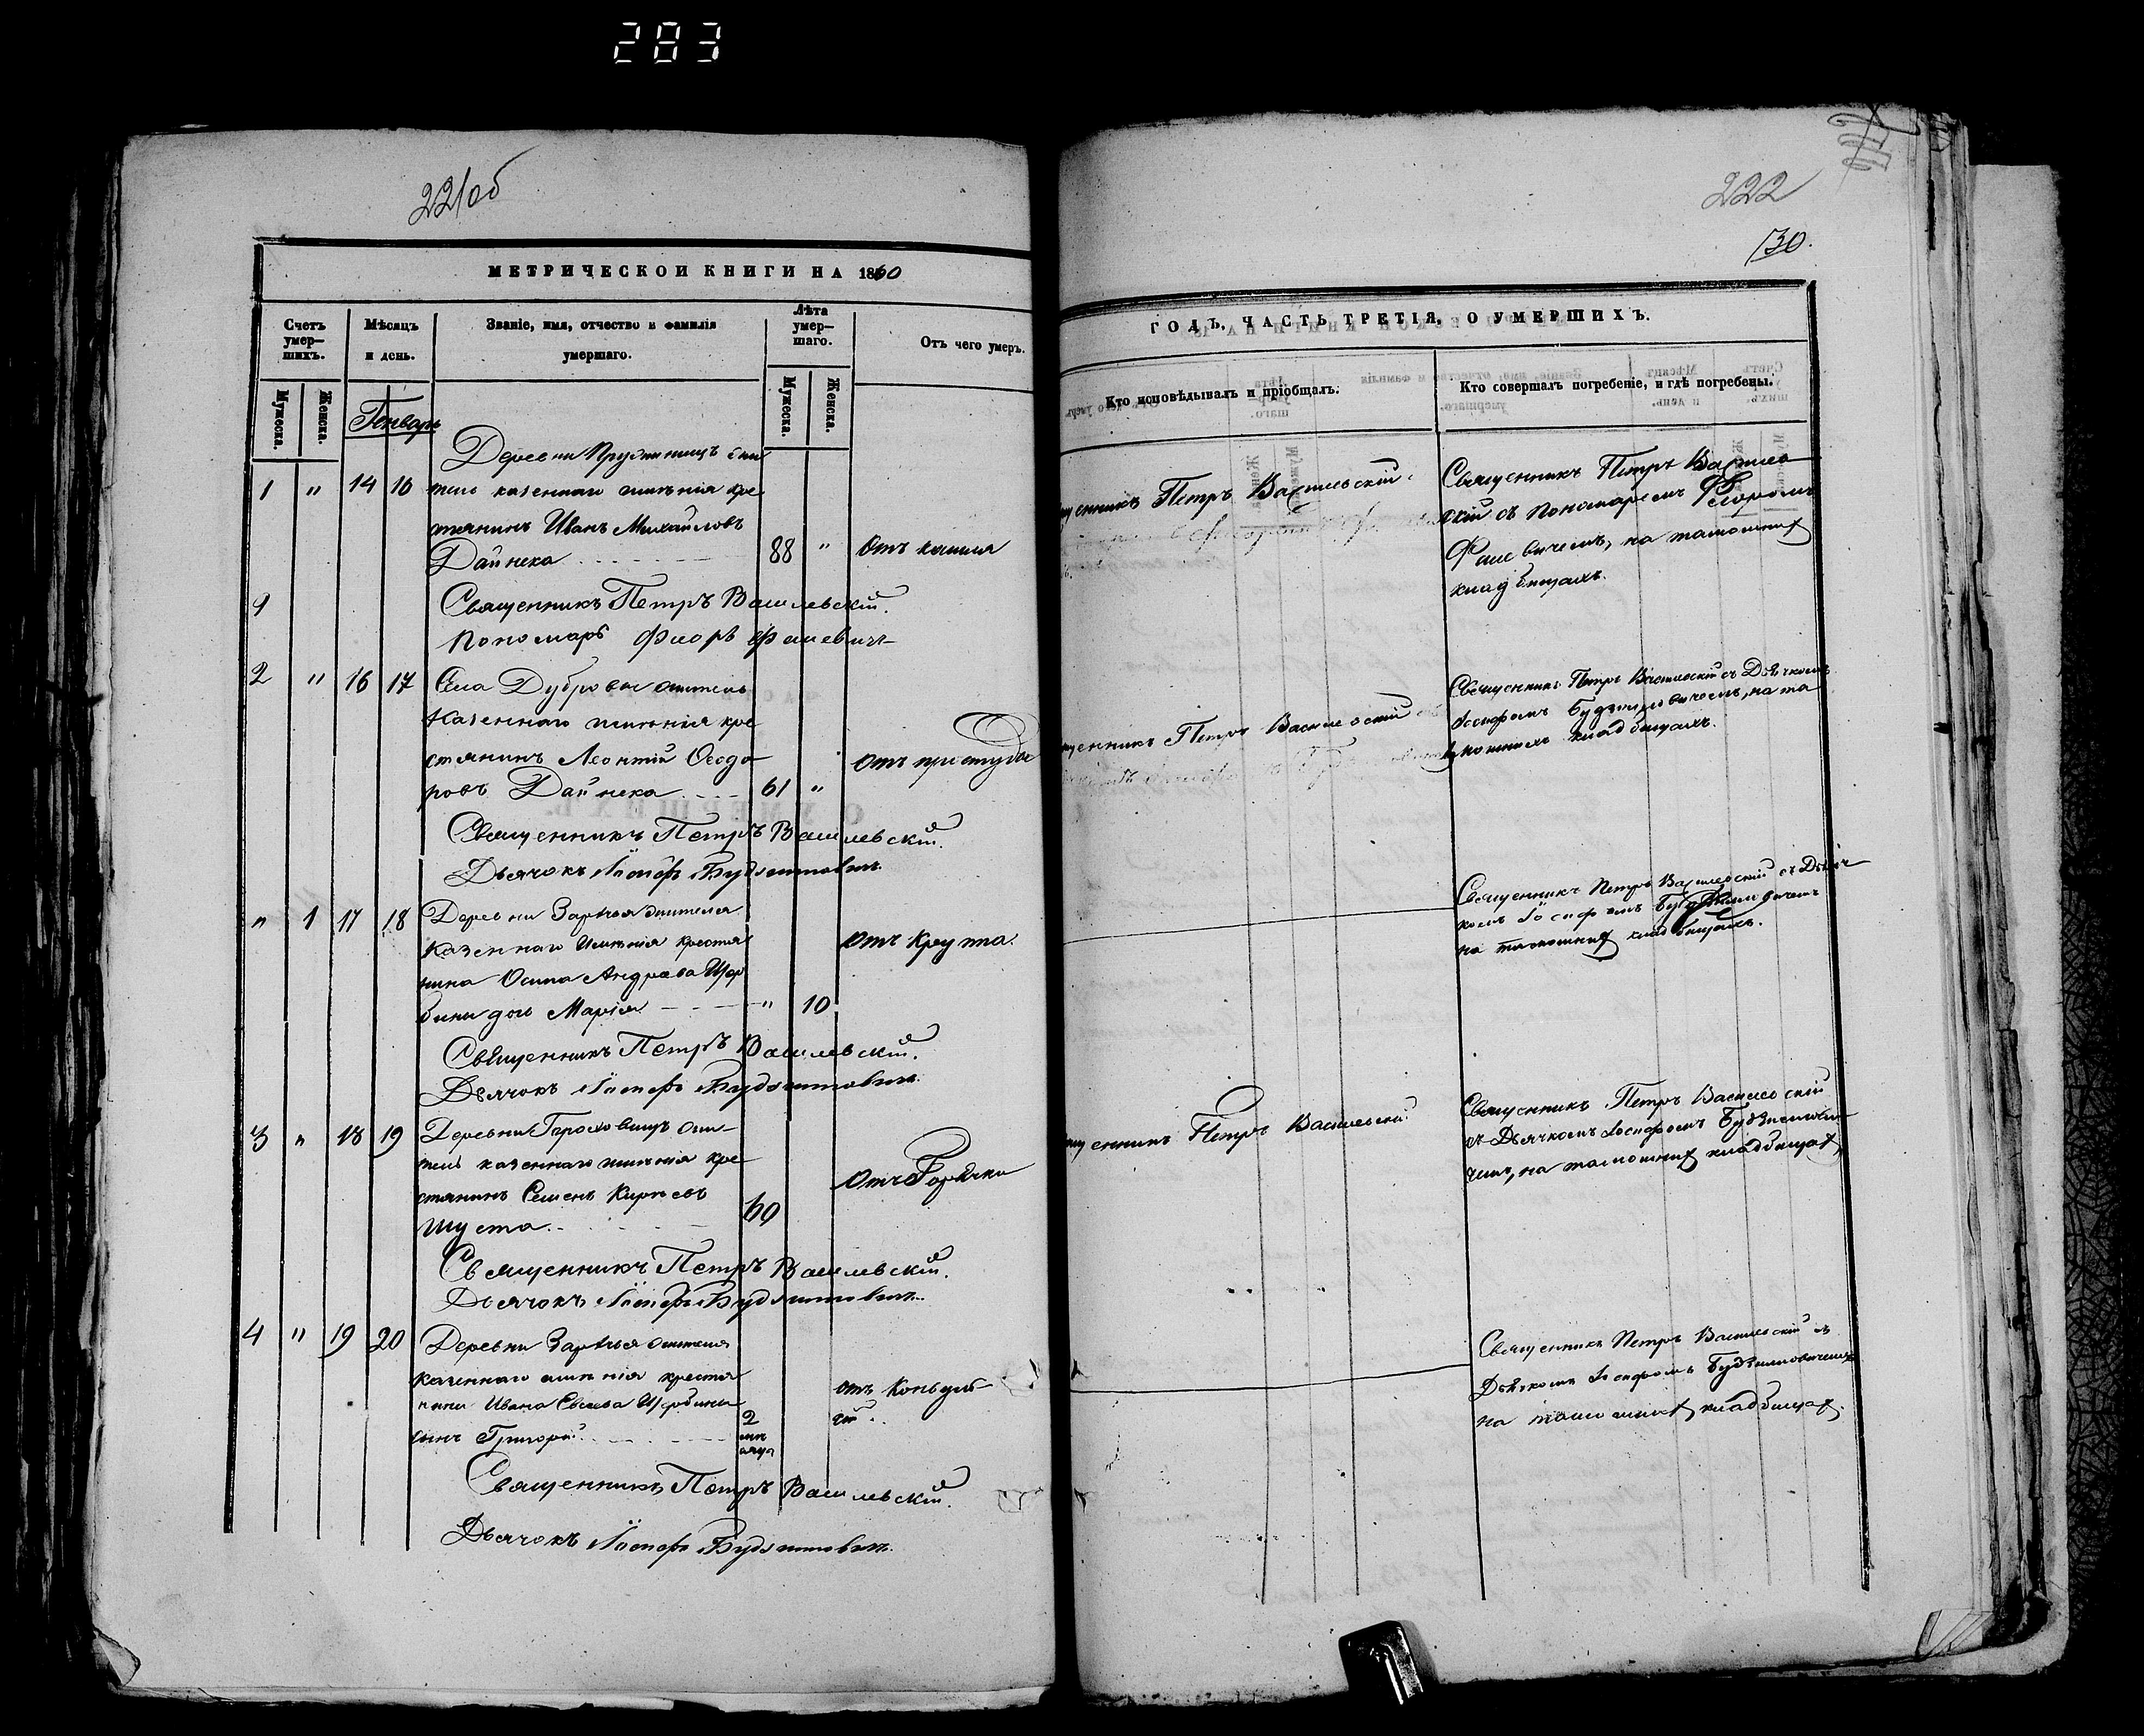 283
221об
МЕТРИЧЕСКОЙ КНИГИ НА 1860
Счетъ умер-шихъ.
Мѣсяцъ и день.
Званіе, имя, отчество и фамилія умершаго.
Лѣта умер-шаго.
Отъ чего умеръ.
Мужеска.
Женска.
Мужеска.
Женска.
Генварь
Деревни
1 " 14 16 казеннаго имѣнія кре
стянинъ Иванъ Михайловъ
Дайнека 88 " Отъ кашля
Священникъ Петръ Василевскій.
Пономарь Флоръ
2 " 16 17 Села Дубровы житель
Казеннаго имѣнія кре
стянинъ Леонтій Ѳеодо
ровъ Дайнека 61 " отъ простуды
Священникъ Петръ Василевскій.
Дьячокъ Іосифъ Будзиловичъ.
" 1 17 18 Деревни Зарѣчья жителя
Казеннаго Имѣнія крестья
нина Осипа Андреева Щер
бины дочь Марія " 10 Отъ Крупа.
Священникъ Петръ Василевскій.
Дьячокъ Іосифъ Будзиловичъ.
3 " 18 19 Деревни Гороховищъ жи-
тель казеннаго имѣнія кре
стянинъ Семенъ Кирѣевъ
Шуста 60 Отъ Горячки
Священникъ Петръ Василевскій.
Дьячокъ Іосифъ Будзиловичъ.
4 " 19 20 Деревни Зарѣчья жителя
казеннаго имѣнія крестья
нина Ивана Щербины
сынъ Григорій 2 отъ
Священникъ Петръ Василевскій.
Дьячокъ Іосифъ Будзиловичъ.
222
130.
ГОДЪ, ЧАСТЬ ТРЕТІЯ, О УМЕРШИХЪ.
Кто исповѣдывалъ и пріобщалъ.
Кто совершалъ погребеніе, и гдѣ погребены.
щенникъ Петръ Василевскій
Священникъ Петръ Василев
скій съ Пономаремъ Флоромъ
на тамошнихъ
кладбищахъ.
щенникъ Петръ Василевскій
Священникъ Петръ Василевскій съ Дьячкомъ
Іосифомъ Будзиловичемъ, на та
мошнихъ кладбищахъ.
Священникъ Петръ Василевскій съ Дьяч
комъ Іосифомъ Будзиловичемъ
на тамошнихъ кладбищахъ.
щенникъ Петръ Василевскій
Священникъ Петръ Василевскій
съ Дьячкомъ Іосифомъ Будзилови
чемъ, на тамошнихъ кладбищахъ
Священникъ Петръ Василевскій съ
Дьячкомъ Іосифомъ Будзиловичемъ
на тамошнихъ кладбищахъ.